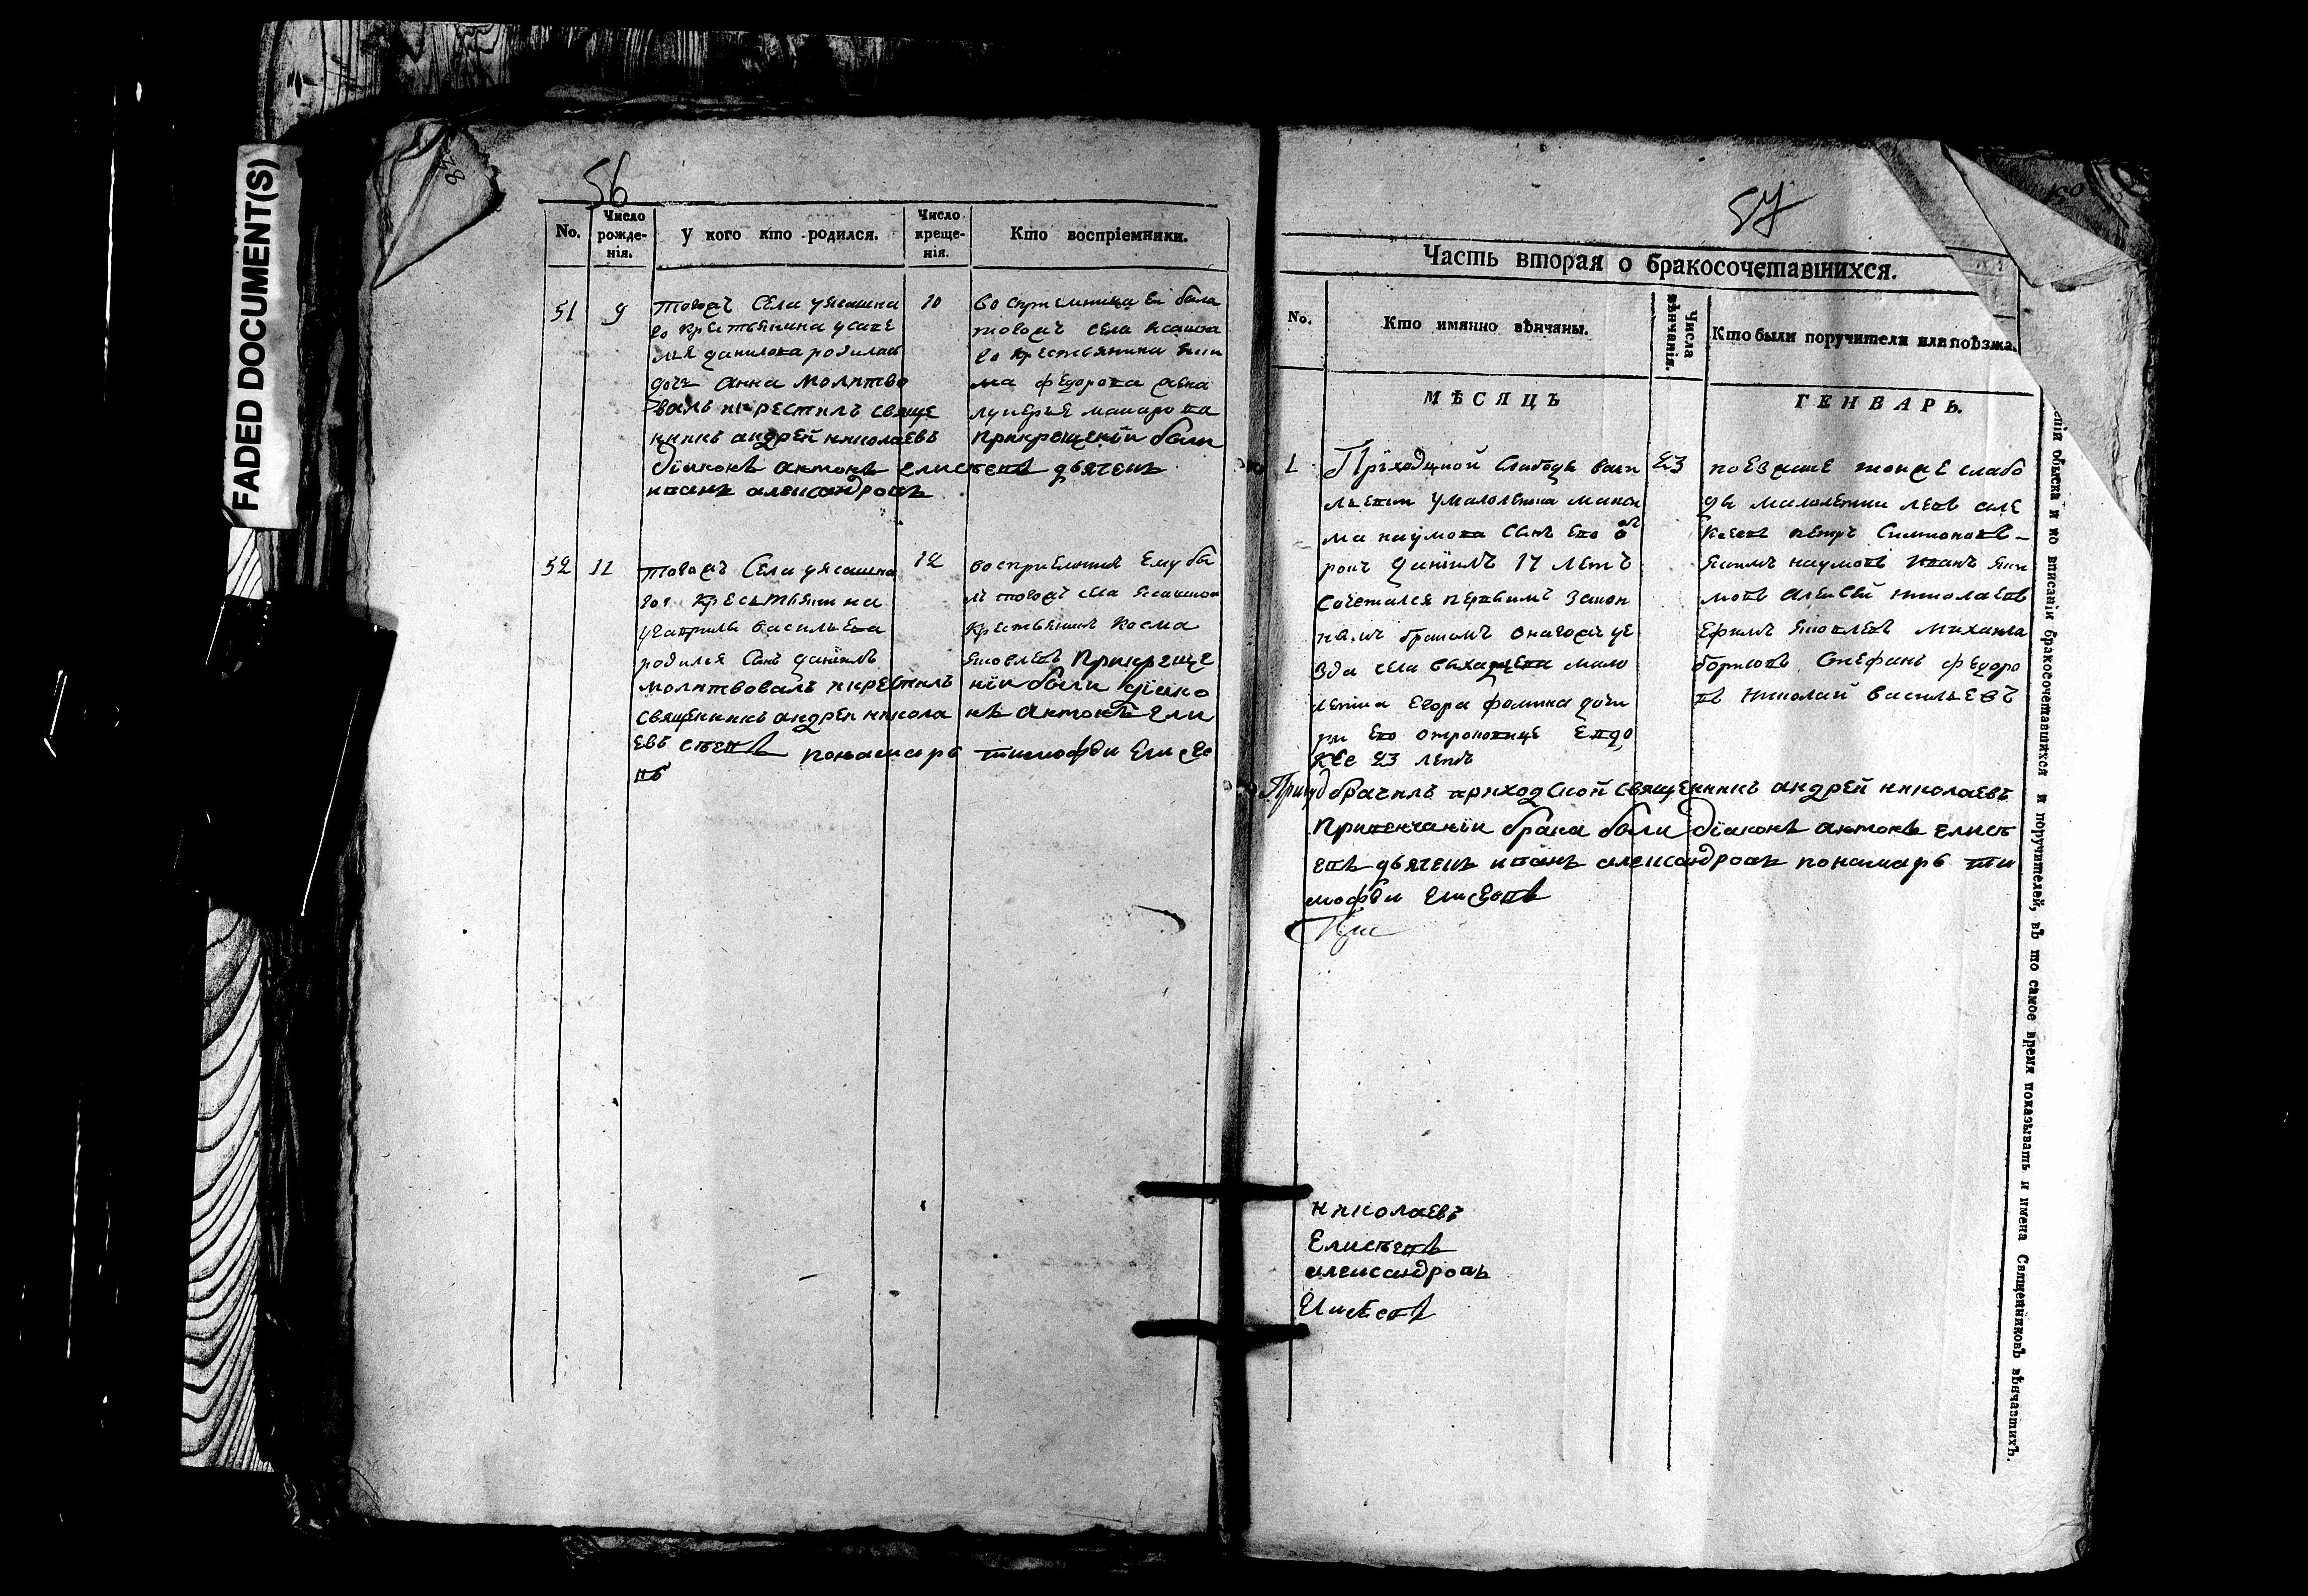 FADED DOCUMENT(S)
56
No.
Число рожде-нія.
У кого кто родился.
Число креще-нія.
Кто воспріемники.
51
9
тогожъ села уясашна
го крестьянина
данилова родилась
дочь анна молитво
валъ икрестилъ свяще
никъ андрей николаевъ
діаконъ антонъ елисеевъ дьячекъ
иванъ александровъ
10
восприемница ей была
тогожъ села ясашна
го крестьянина
ма федорова жена
макарова
прикрещеніи были
52
11
тогожъ села уясашна
го крестьянина
гаврилы васильева
родился сынъ даніилъ
молитвовалъ икрестилъ
священникъ андреи никола
евъ понамарь тимофеи елисее
въ
12
восприемникъ ему бы
лъ тогожъ села ясашнои
крестьянинъ косма
яковлевъ прикреще
ніи были діако
нъ антонъ ели
57
Часть вторая о бракосочетавшихся.
No.
Кто имянно вѣнчаны.
Числа вѣнчанія.
Кто были поручители или поѣзжа.
МѢСЯЦЪ
ГЕНВАРЬ.
1
Приходцкой слободы
умалолетка макси
ма наумова сынъ ево от
рокъ даніилъ 17 летъ
сочетался первымъ закон
нымъ бракомъ онагожъ уе
зда села мало
летка егора фомина дочи
рью ево отроковице евдо
кее 23 летъ
23
поезжие тояже слабо
ды малолетки левъ але
ксеевъ петръ симионовъ
якимъ наумовъ иванъ яки
мовъ алексей николаевъ
ефимъ яковлевъ михаила
борисовъ стефанъ федоро
въ николай васильевъ
обрачилъ приходской священникъ андрей николаевъ
привенчаніи брака были діаконъ антонъ елисе
евъ дьячекъ иванъ александровъ понамарь ти
мофеи елисеевъ
николаевъ
Елисеевъ
александровъ
Елисеевъ
обыска и по вписаніи бракосочетавшихся и поручителей, въ то самое время показывать и имена Священниковъ вѣнчавшихъ.